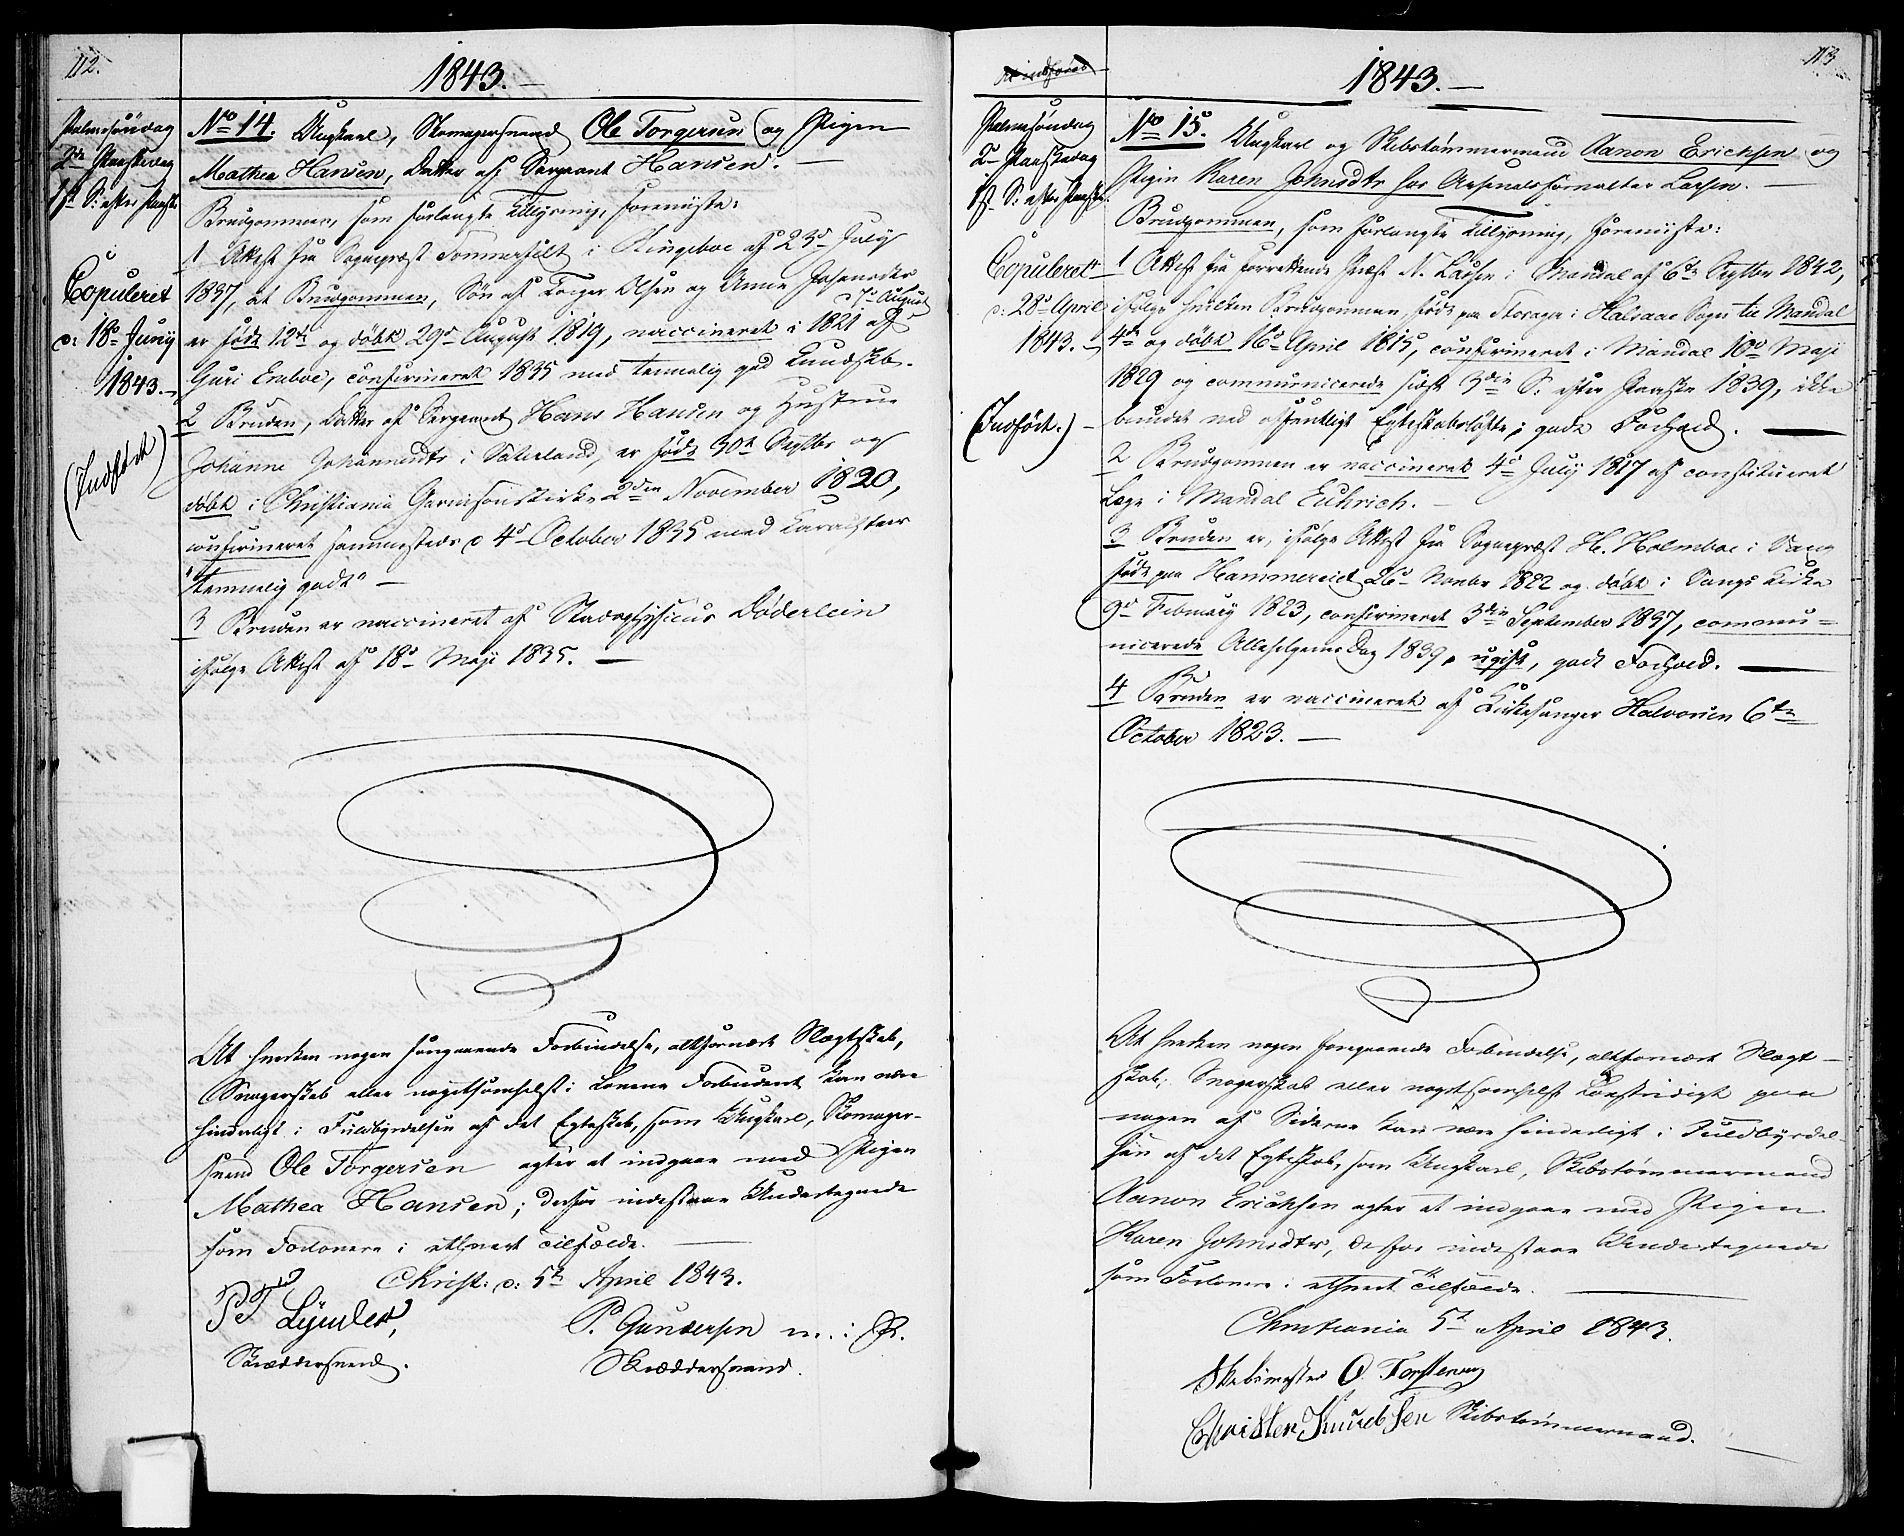 112.
1843.
Palmesöndag
2den Paaskedag
1st S: efter Paaske
Copuleret
d: 18de Juny
1843.
(Indført)
No 14. Ungkarl, Skomagersvend Ole Torgersen og Pigen
Mathea Hansen, Datter af Sergeant Hansen.
Brudgommen, som forlangte Tillysning, foreviiste:
1 Attest fra Sognepræst Sommerfelt i Ringeboe af 23de July
1837, at Brudgommen, Søn af Torger Olsen og Anne
er født 12te og døbt 29de August 1819, vaccineret i 1821 af
d 7de August
Guri Enboe, confirmeret 1835 med temmelig god Kundskab.
2 Bruden, Datter af Sergeant Hans Hansen og Hustrue
Johanne Johannesdtr i Saterland, er født 30te Septbr og
døbt i Christiania Garnisonskirke 2den November 1820,
confirmeret sammesteds d 4de October 1835 med Karakteer
"temmelig godt"
3 Bruden er vaccineret af Stadsphysicus Døderlein
ifølge Attest af 18de Maji 1835.
At hverken nogen foregaaende Forbindelse, altfornært Slægtskab,
Svogerskab eller nogetsomhelst i Lovene Forbudent kan være
hinderligt i Fuldbyrdelsen af det Egteskab, som Ungkarl, Skomager-
svend Ole Torgersen agter at indgaae med Pigen
Mathea Hansen; derfor indestaae Undertegnede
som Forlovere i ethvert Tilfælde.
Christ: d: 5te April 1843.
Skræddersvend.
P. Gundersen m: i: P.
Skræddersvend.
113
1843.
Palmesöndag
2 Paaskedag
1st S: efter Paaske
Copuleret
d: 28de April
1843.
(Indført.)
No 15. Ungkarl og Skibstømmermand Aanon Erichsen og
Pigen Karen Johnsdtr hos Arsenalsforvalter Larsen.
Brudgommen, som forlangte Tillysning, foreviiste:
1 Attest fra forrettende Præst N. Larsen i Mandal af 6te Septbr 1842,
ifølge hvilken Brudgommen født paa Storager i Halsaae Sogn til Mandal
4de og døbt 16de April 1815, confirmeret i Mandal 10de Maji
1829 og communicerede sidst 3die S: efter Paaske 1839, ikke
bundet ved offentligt Egteskabsløfte; godt Forhold.
2 Brudgommen er vaccineret 4de July 1817 af constitueret
Læge i Mandal Euhrich.
3 Bruden er, ifølge Attest fra Sognepræst H. Holmboe i Vang
født paa Hammereid 26de Novbr 1822 og døbt i Vangs Kirke
9de February 1823, confirmeret 3die September 1837, commu=
nicerede Allehelgens Dag 1839, ugift, godt Forhold.
4 Bruden er vaccineret af Kirkesanger Halvorsen 6te
October 1823.
At hverken nogen foregaaende Forbindelse, altfornært Slægt-
skab, Svogerskab eller nogetsomhelst Lovstridigt paa
nogen af Siderne kan være hinderligt i Fuldbyrdel-
sen af det Egteskab, som Ungkarl, Skibstømmermand
Aanon Erichsen agter at indgaae med Pigen
Karen Johnsdtr, derfor indestaae Undertegnede
som Forlovere i ethvert Tilfælde.
Christiania 5te April 1843.
Skibsmester O Torstensen
Christen Knudsen Skibstømmermand.